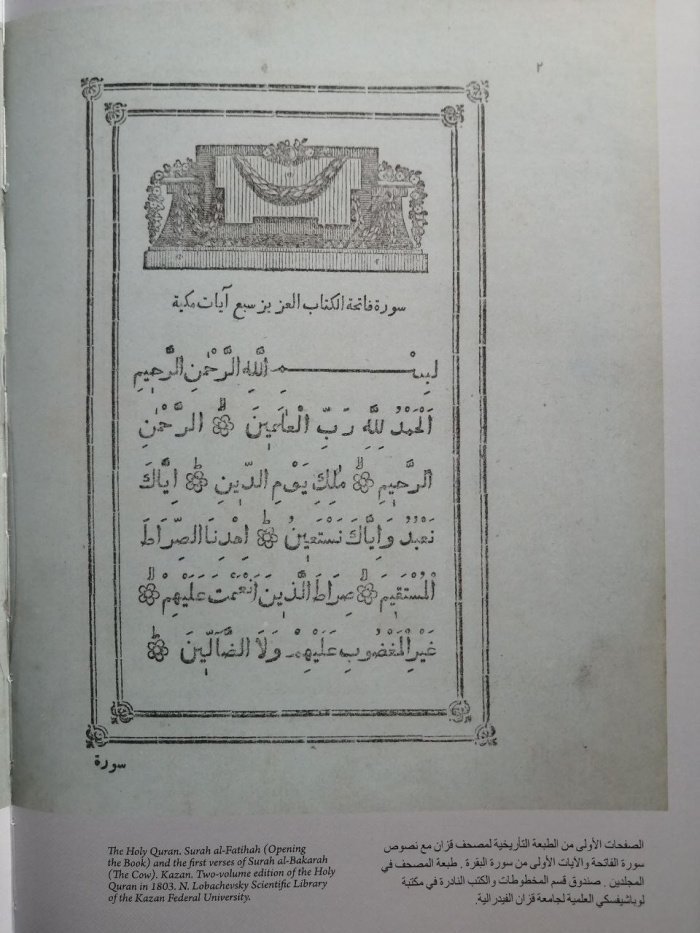 ٢
سورة فاتحة الكتاب العزيز سبع آيات مكية
بِسْـــــــــمِ اللّٰهِ الرَّحْمٰنِ الرَّحِيمِ
اَلْحَمْدُ لِلّٰهِ رَبِّ الْعٰلَمِينَ الرَّحْمٰنِ
الرَّحِيمِ مٰلِكِ يَوْمِ الدِّينِ اِيَّاكَ
نَعْبُدُ وَاِيَّاكَ نَسْتَعِينُ اِهْدِنَا الصِّرَاطَ
الْمُسْتَقِيمَ صِرَاطَ الَّذِينَ اَنْعَمْتَ عَلَيْهِمْ
غَيْرِ الْمَغْضُوبِ عَلَيْهِمْ وَلَا الضَّآلِّينَ
سورة
The Holy Quran. Surah al-Fatihah (Opening
the Book) and the first verses of Surah al-Bakarah
(The Cow). Kazan. Two-volume edition of the Holy
Quran in 1803. N. Lobachevsky Scientific Library
of the Kazan Federal University.
الصفحات الأولى من الطبعة التأريخية لمصحف قزان مع نصوص
سورة الفاتحة والايات الأولى من سورة البقرة . طبعة المصحف في
المجلدين . صندوق قسم المخطوطات والكتب النادرة في مكتبة
لوباشيفسكي العلمية لجامعة قزان الفيدرالية.